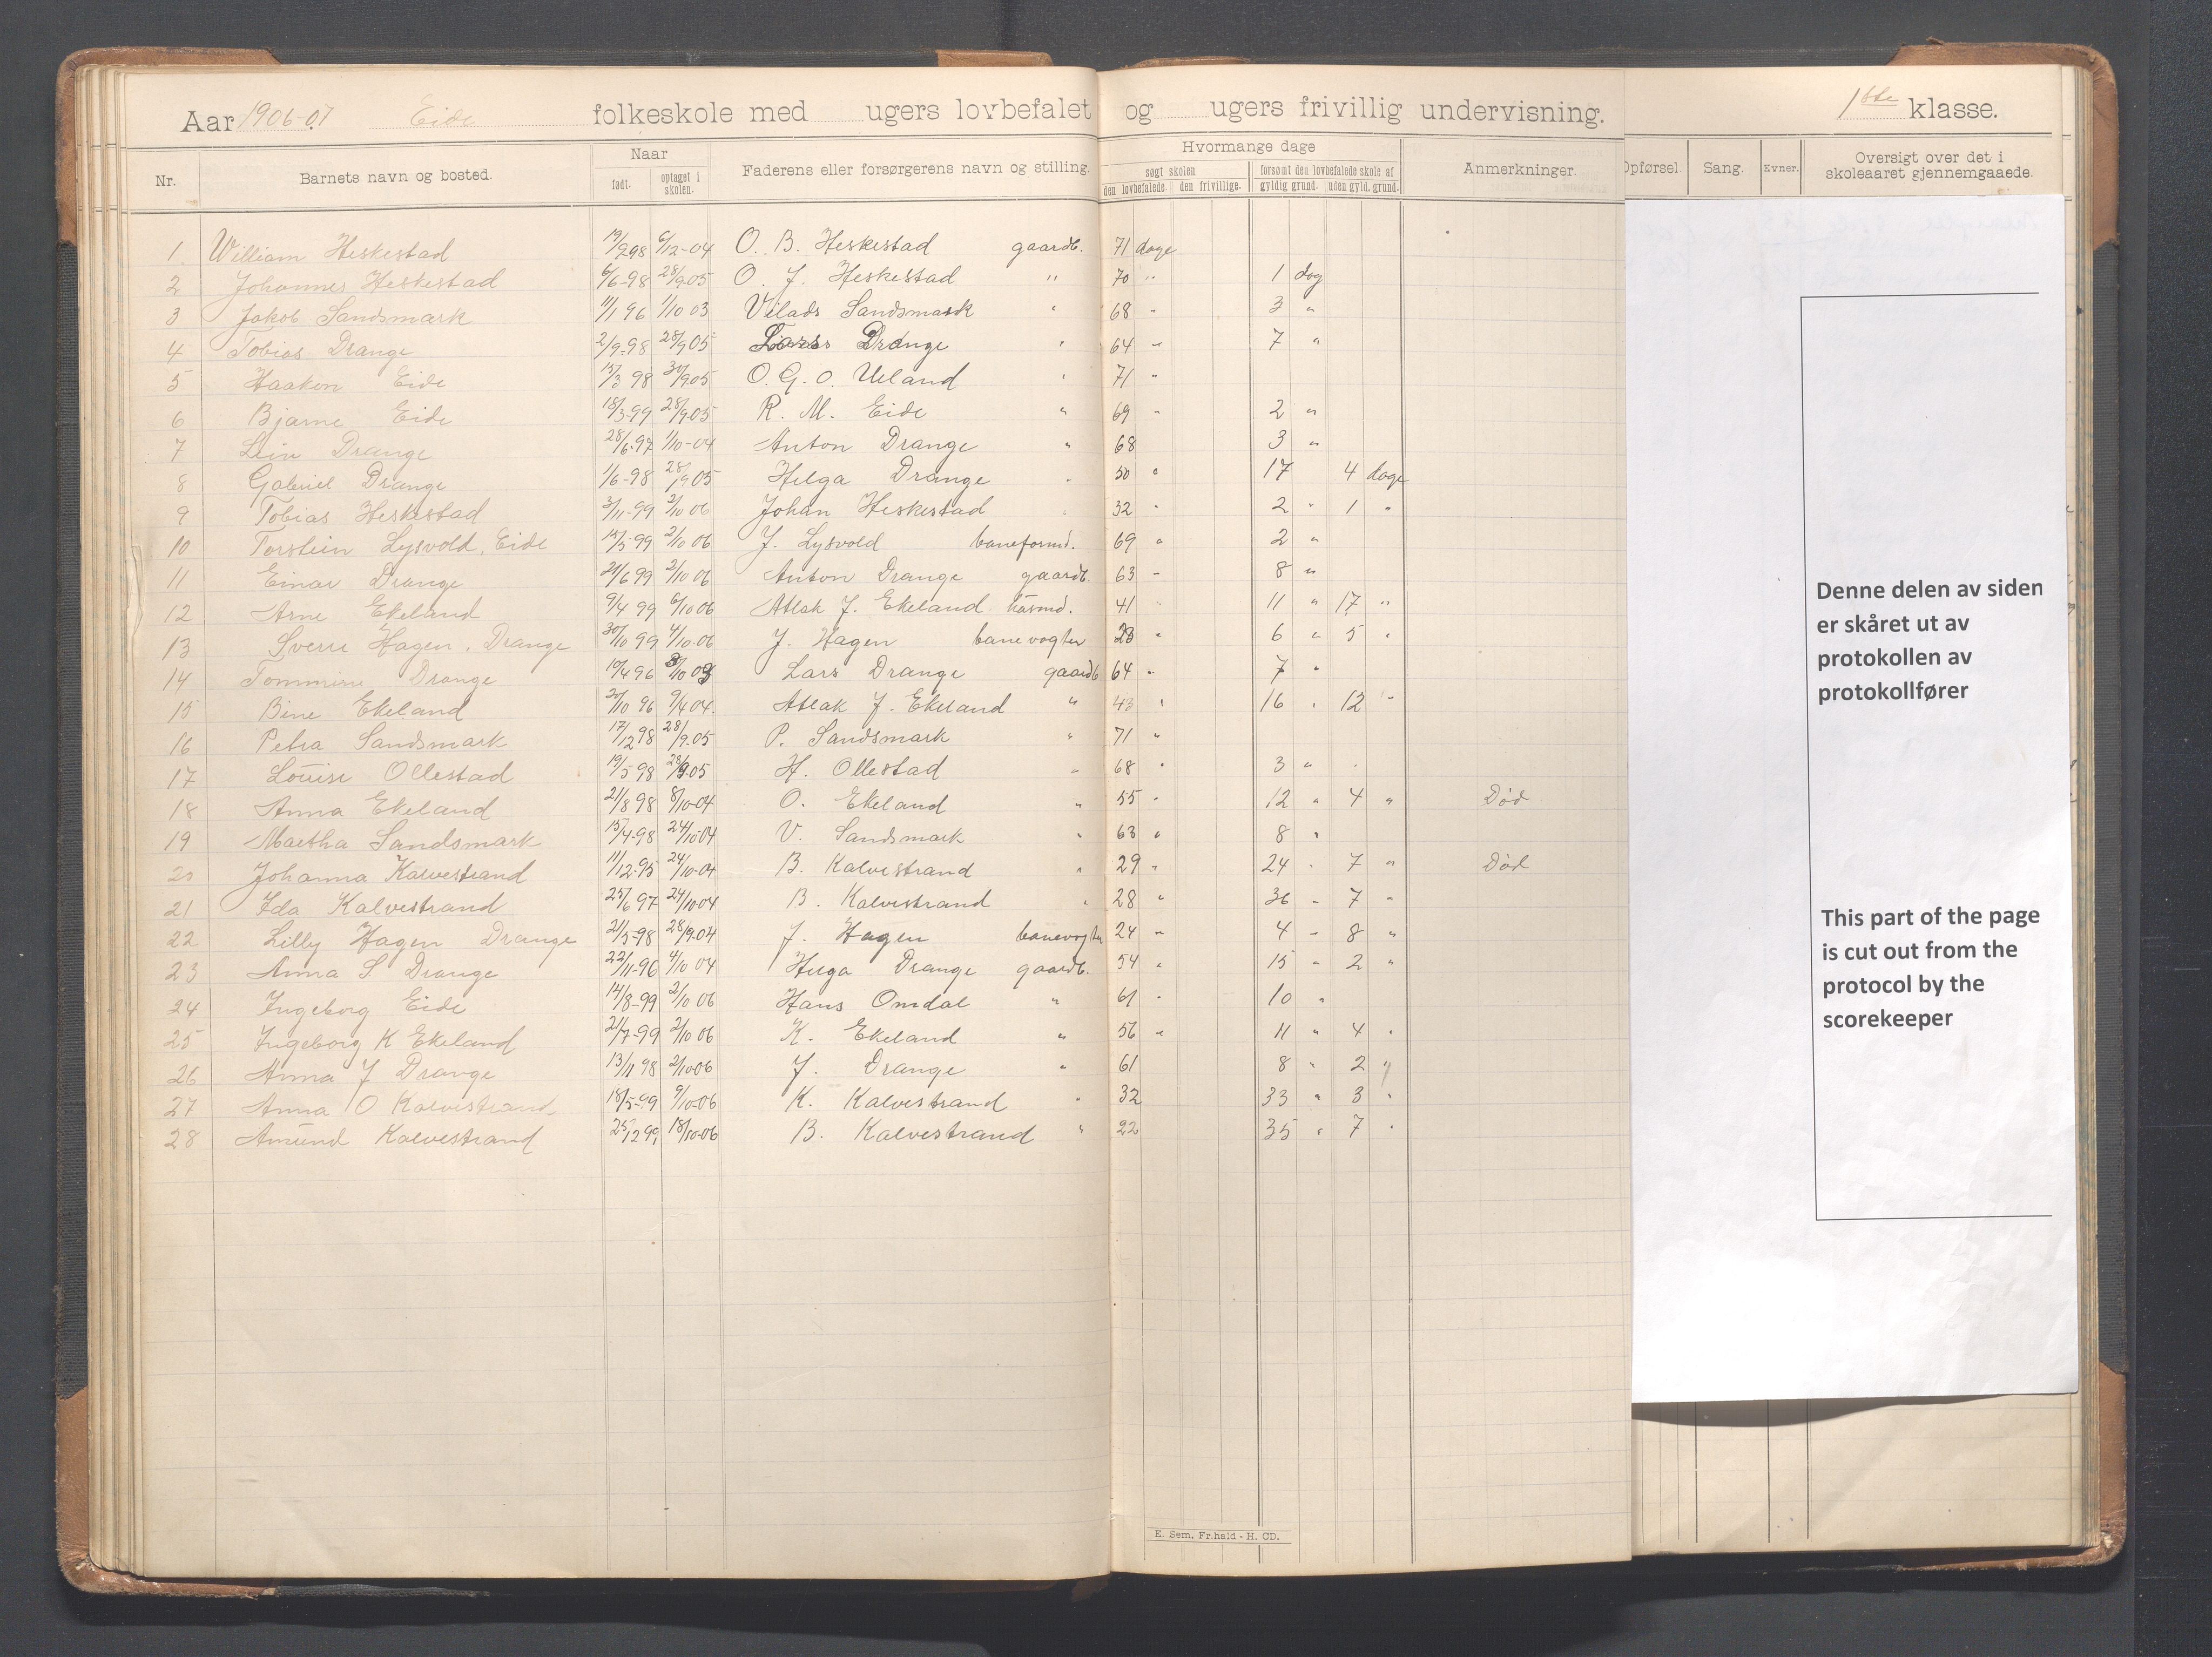 Aar 1906-07 Eide folkeskole med ugers lovbefalet og ugers frivillig undervisning. 1ste klasse.
Nr. Barnets navn og bosted. Naar født. optaget i skolen. Faderens eller forsørgerens navn og stilling. Hvormange dage søgt skolen den lovbefalede. den frivillige. forsømt den lovbefalede skole af gyldig grund. uden gyld. grund. Anmerkninger. Opførsel. Sang. Evner. Oversigt over det i skoleaaret gjennemgaaede.
1. William Heskestad 19/2 98 6/12-04 O. B. Heskestad gaardb. 71 dage
2 Johannes Heskestad 6/6-98 28/9 05 O. J. Heskestad " 70 " 1 dag
3 Jakob Sandsmark 11/1 96 1/10 03 Vilads Sandsmark " 68 " 3 "
4 Tobias Drange 2/9-98 28/9 05 Lars Drange " 64 " 7 "
5 Haakon Eide 15/3 98 30/9 05 O. G. O. Ueland " 71 "
6 Bjarne Eide 18/3-99 28/9 05 R. M. Eide " 69 " 2 "
7 Lein Drange 28/6-97 1/10-04 Anton Drange " 68 3 "
8 Gabriel Drange 1/6-98 28/9 05 Helga Drange " 50 " 17 4 dage
9 Tobias Heskestad 3/11-99 2/10 06 Johan Heskestad " 32 " 2 " 1 "
10 Torstein Lysvold, Eide 15/5-99 2/10 06 J. Lysvold baneformd. 69 " 2 "
11 Einar Drange 21/6 99 2/10 06 Anton Drange gaardb. 63 " 8 "
12 Arne Ekeland 9/4 99 6/10 06 Atlak J. Ekeland husmd. 41 " 11 " 17 "
13 Sverre Hagen, Drange 30/10 99 4/10-06 J. Hagen banevogter 28 " 6 " 5 "
14 Tommine Drange 19/4 96 Lars Drange gaardb 64 " 7 "
15 Bine Ekeland 20/10 96 9/4 04 Atlak J. Ekeland " 43 " 16 " 12 "
16 Petra Sandsmark 17/12 98 28/9-05 P. Sandsmark " 71 "
17 Louise Ollestad 19/5 98 28/9 05 H. Ollestad " 68 " 3 "
18 Anna Ekeland 21/8 98 8/10-04 O. Ekeland " 55 " 12 " 4 " Død
19 Martha Sandsmark 15/4-98 24/10-04 V. Sandsmark " 63 " 8 "
20 Johanna Kalvestrand 11/12-95 24/10-04 B. Kalvestrand " 29 " 24 " 7 " Død
21 Ida Kalvestrand 25/6 97 24/10-04 B. Kalvestrand " 28 " 36 " 7 "
22 Lilly Hagen Drange 21/5-98 28/9-04 J. Hagen banevogter 24 " 4 " 8 "
23 Anna S Drange 22/11-96 4/10 04 Helga Drange gaardb. 54 " 15 " 2 "
24 Ingeborg Eide 14/8-99 2/10 06 Hans Omdal " 61 " 10 "
25 Ingeborg K Ekeland 21/7-99 2/10 06 K. Ekeland " 56 " 11 " 4 "
26 Anna J Drange 13/11 98 2/10-06 J. Drange " 61 8 " 2 "
27 Anna O Kalvestrand 18/5-99 9/10-06 K. Kalvestrand " 32 33 " 3 "
28 Amund Kalvestrand 25/12 99 18/10-06 B. Kalvestrand " 22 35 " 7 "
E. Sem, Fr.hald - H. CD.
Denne delen av siden
er skåret ut av
protokollen av
protokollfører
This part of the page
is cut out from the
protocol by the
scorekeeper